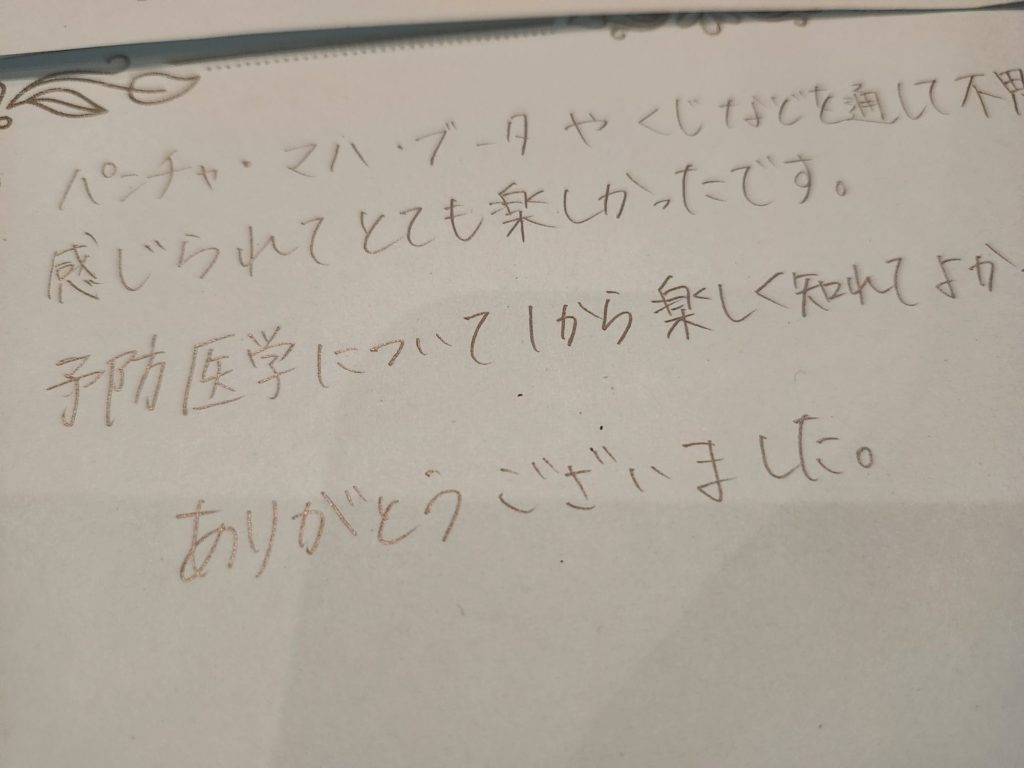 パンチャ・マハ・ブータやくじなどを通して不
感じられてとても楽しかったです。
予防医学について1から楽しく知れてよか
ありがとうございました。